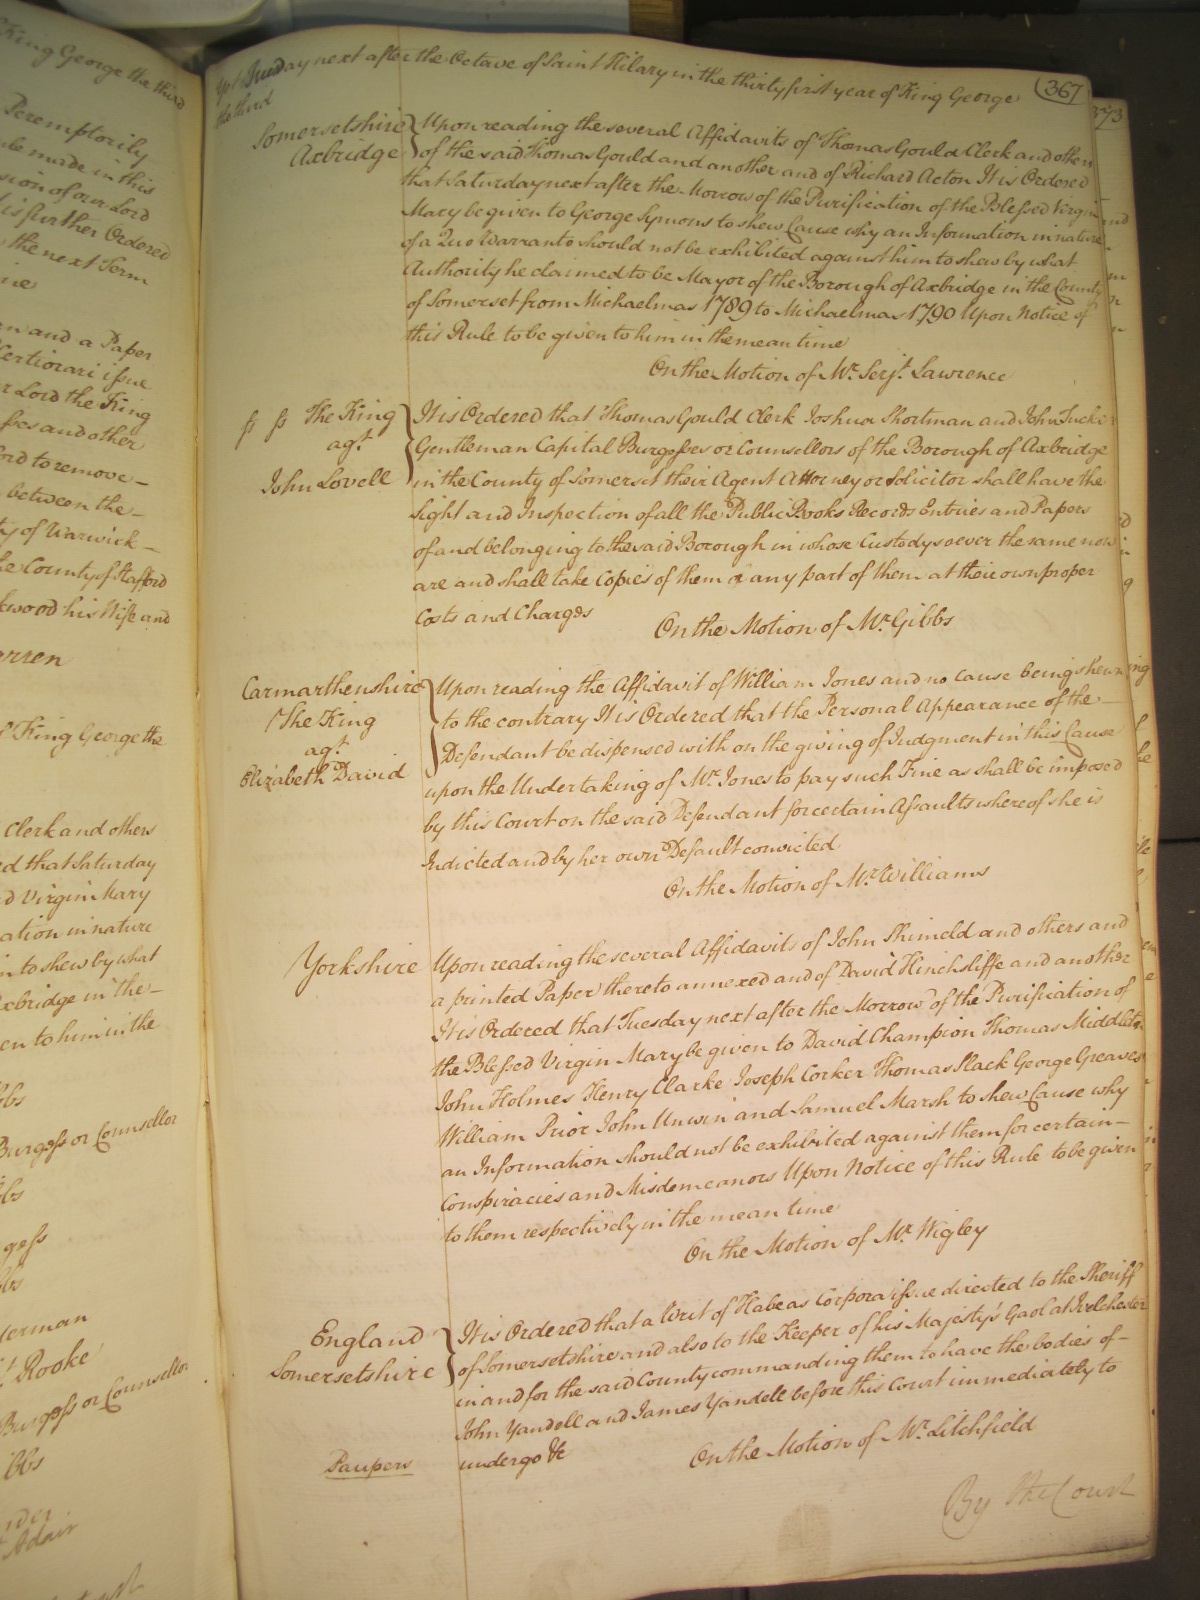 King George the third
Peremptorily
made in this
sion of our Lord
is further Ordered
the next Term
en and a Paper
Certiorari issue
r Lord the King
sses and other
ord to remove -
between the -
ty of Warwick -
he County of Stafford
kwood his Wife and
rren
King George the
Clerk and others
ed that Saturday
d Virgin Mary
ation in nature
n to shew by what
xbridge in the -
en to him in the
bbs
Burgess or Counsellor
bbs
gess
bbs
derman
Rooke
Burgess or Counsellor
ibbs
Adair
Tuesday next after the Octave of Saint Hilary in the thirty first year of King George
the third
367
373
Somersetshire
Axbridge
Upon reading the several Affidavits of Thomas Gould Clerk and others
of the said Thomas Gould and another and of Richard Acton It is Ordered
that Saturday next after the Morrow of the Purification of the Blessed Virgin
Mary be given to George Symons to shew Cause why an Information in nature
of a Quo Warranto should not be exhibited against him to shew by what
Authority he claimed to be Mayor of the Borough of Axbridge in the County
of Somerset from Michaelmas 1789 to Michaelmas 1790 Upon Notice of
this Rule to be given to him in the mean time
On the Motion of Mr. Serjt. Lawrence
ss ss The King
agt
John Lovell
It is Ordered that Thomas Gould Clerk Joshua Shortman and John Tucker
Gentleman Capital Burgesses or Counsellors of the Borough of Axbridge
in the County of Somerset their Agent Attorney or Solicitor shall have the
Sight and Inspection of all the Public Books Records Entries and Papers
of and belonging to the said Borough in whose Custody soever the same now
are and shall take Copies of them or any part of them at their own proper
Costs and Charges
On the Motion of Mr. Gibbs
Carmarthenshire
The King
agt
Elizabeth David
Upon reading the Affidavit of William Jones and no Cause being shewn
to the contrary It is Ordered that the Personal Appearance of the -
Defendant be dispensed with on the giving of Judgment in this Cause
upon the Undertaking of Mr. Jones to pay such Fine as shall be imposed
by this Court on the said Defendant for certain Assaults whereof she is
Indicted and by her own Default convicted
On the Motion of Mr. Williams
Yorkshire
Upon reading the several Affidavits of John Shimeld and others and
a printed Paper thereto annexed and of David Hinchsliffe and another
It is Ordered that Tuesday next after the Morrow of the Purification of
the Blessed Virgin Mary be given to David Champion Thomas Middleton
John Holmes Henry Clarke Joseph Corker Thomas Slack George Greaves
William Prior John Unwin and Samuel Marsh to shew Cause why
an Information should not be exhibited against them for certain -
Conspiracies and Misdemeanors Upon Notice of this Rule to be given
to them respectively in the mean time
On the Motion of Mr. Wigley
England
Somersetshire
It is Ordered that a Writ of Habeas Corpora issue directed to the Sheriff
of Somersetshire and also to the Keeper of his Majesty's Gaol at Ivelchester
in and for the said County commanding them to have the bodies of -
John Yandell and James Yandell before this Court immediately to
undergo &c
Paupers
On the Motion of Mr. Litchfield
By the Court